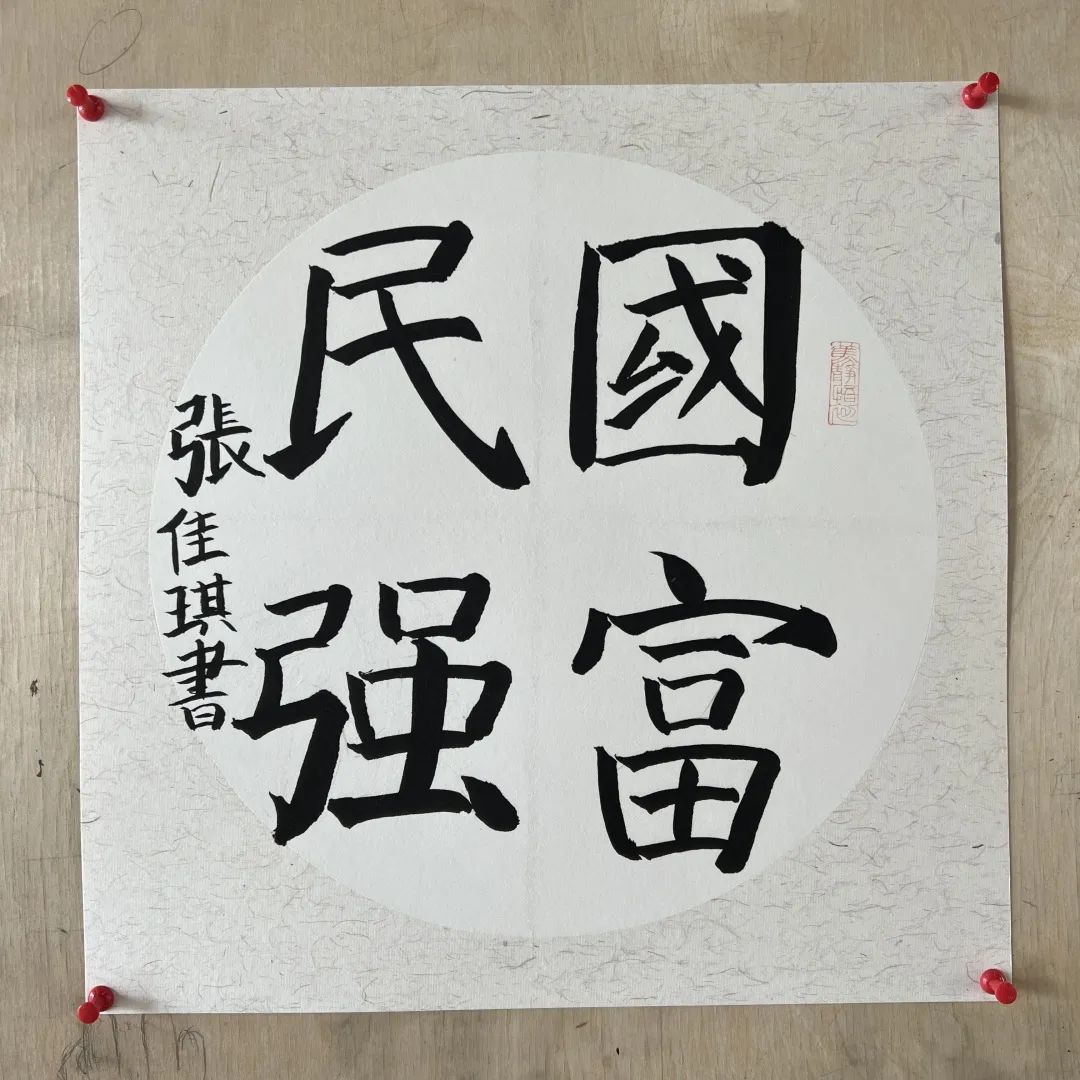 國富
民强
張佳琪書